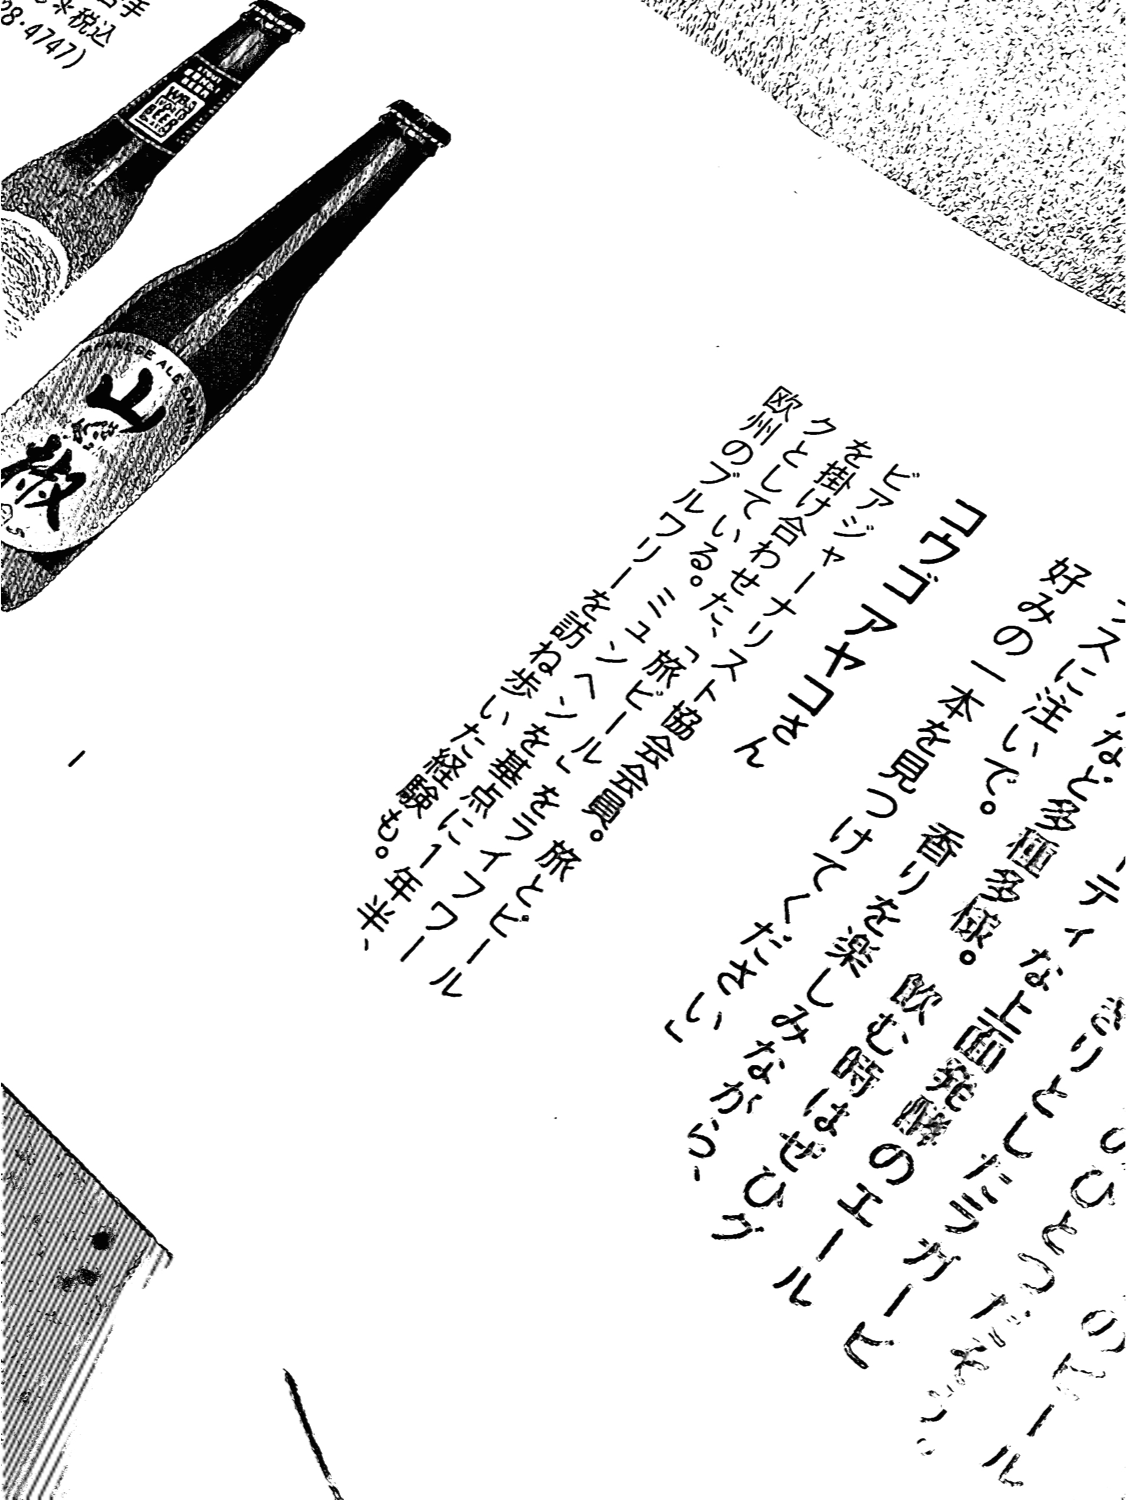 のビール
のひとつだそう。
きりとしたラガービ
ーティな上面発酵のエール
など多種多様。飲む時はぜひグ
スに注いで。香りを楽しみながら、
好みの一本を見つけてください」
コウゴ アヤコさん
ビアジャーナリスト協会会員。旅とビール
を掛け合わせた、「旅ビール」をライフワー
クとしている。ミュンヘンを基点に1年半、
欧州のブルワリーを訪ね歩いた経験も。
手
*税込
28・4747)
JAPANESE ALE
山椒
BEER